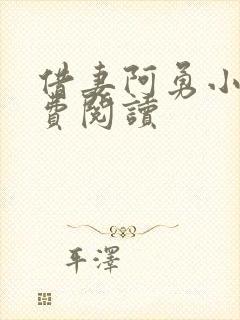 借妻阿勇小
費閱讀
平澤